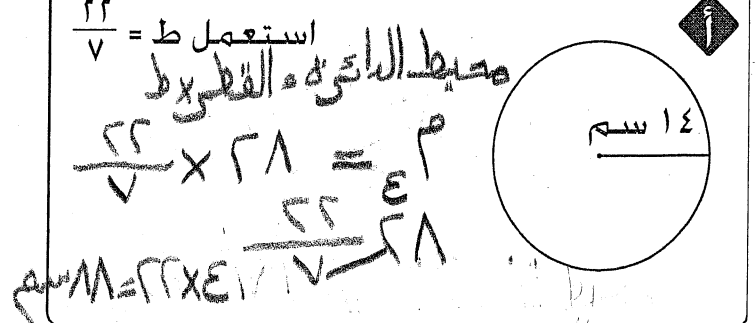 أ
استعمل ط = ٢٢/٧
١٤ سم
محيط الدائرة = القطر × ط
م = ٢٨ × ٢٢/٧
٤
٢٨ ٢٢/٧
٤×٢٢=٨٨سم